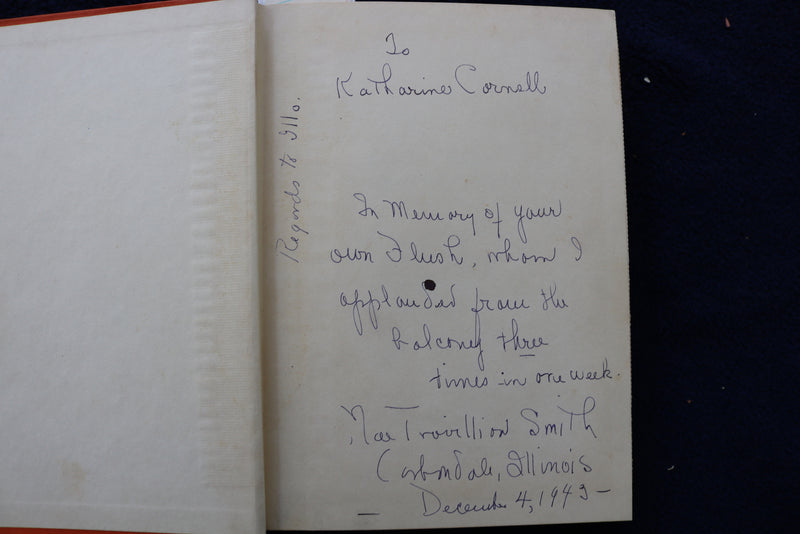 To
Katharine Cornell
Regards to Illo.
In Memory of your
own Flush, whom I
applauded from the
balcony three
times in one week.
Mae Trovillion Smith
Carbondale, Illinois
— December 4, 1943 —